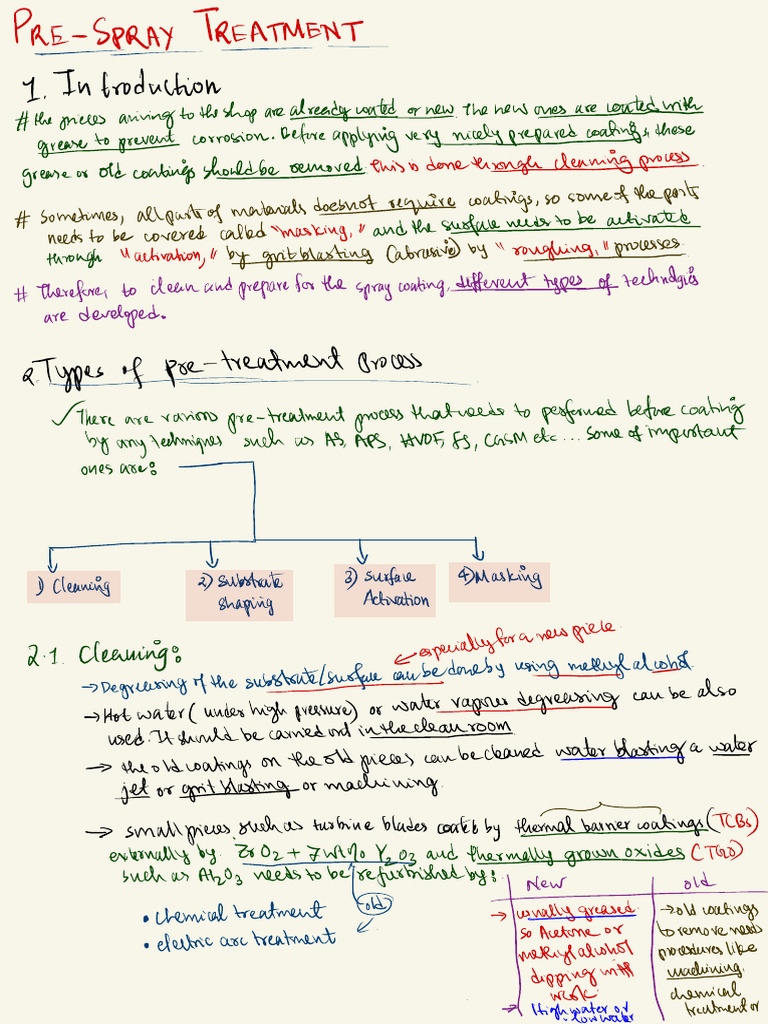 PRE-SPRAY TREATMENT
1. Introduction
# the pieces arriving to the shop are already coated or new. The new ones are coated with
grease to prevent corrosion. Before applying very nicely prepared coatings, these
grease or old coatings should be removed. This is done through cleaning process
# Sometimes, all parts of materials doesnot require coatings, so some of the parts
needs to be covered called "masking," and the surface needs to be activated
through "activation," by gritblasting (abrasive) by "roughing," processes.
# Therefore, to clean and prepare for the spray coating, different types of technologies
are developed.
2. Types of pre-treatment process
✓ There are various pre-treatment process that needs to performed before coating
by any techniques such as AS, APS, HVOF, FS, CGSM etc... Some of important
ones are:
1) Cleaning
2) Substrate
shaping
3) Surface
Activation
4) Masking
2.1. Cleaning:
especially for a new piece
→ Degreasing of the substrate/surface can be done by using methyl alcohol.
→ Hot water (under high pressure) or water vapour degreasing can be also
used. It should be carried out in the clean room
→ the old coatings on the old pieces can be cleaned water blasting a water
jet or grit blasting or machining.
→ small pieces such as turbine blades coated by thermal barrier coatings (TCBs)
externally by ZrO2 + 7wt% Y2O3 and thermally grown oxides (TGO)
such as Al2O3 needs to be refurbished by:
old
• chemical treatment
• electric arc treatment
New
→ usually greased
so Acetone or
methyl alcohol
dipping with
work.
→ High water or
low water
old
→ old coatings
to remove needs
procedures like
machining.
chemical
treatment or